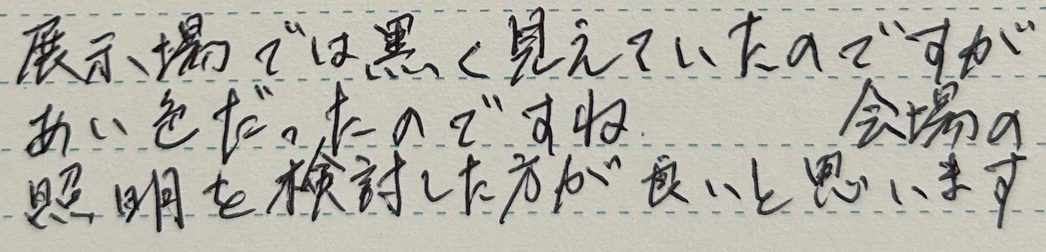 展示場では黒く見えていたのですが
あい色だったのですね　　　会場の
照明を検討した方が良いと思います